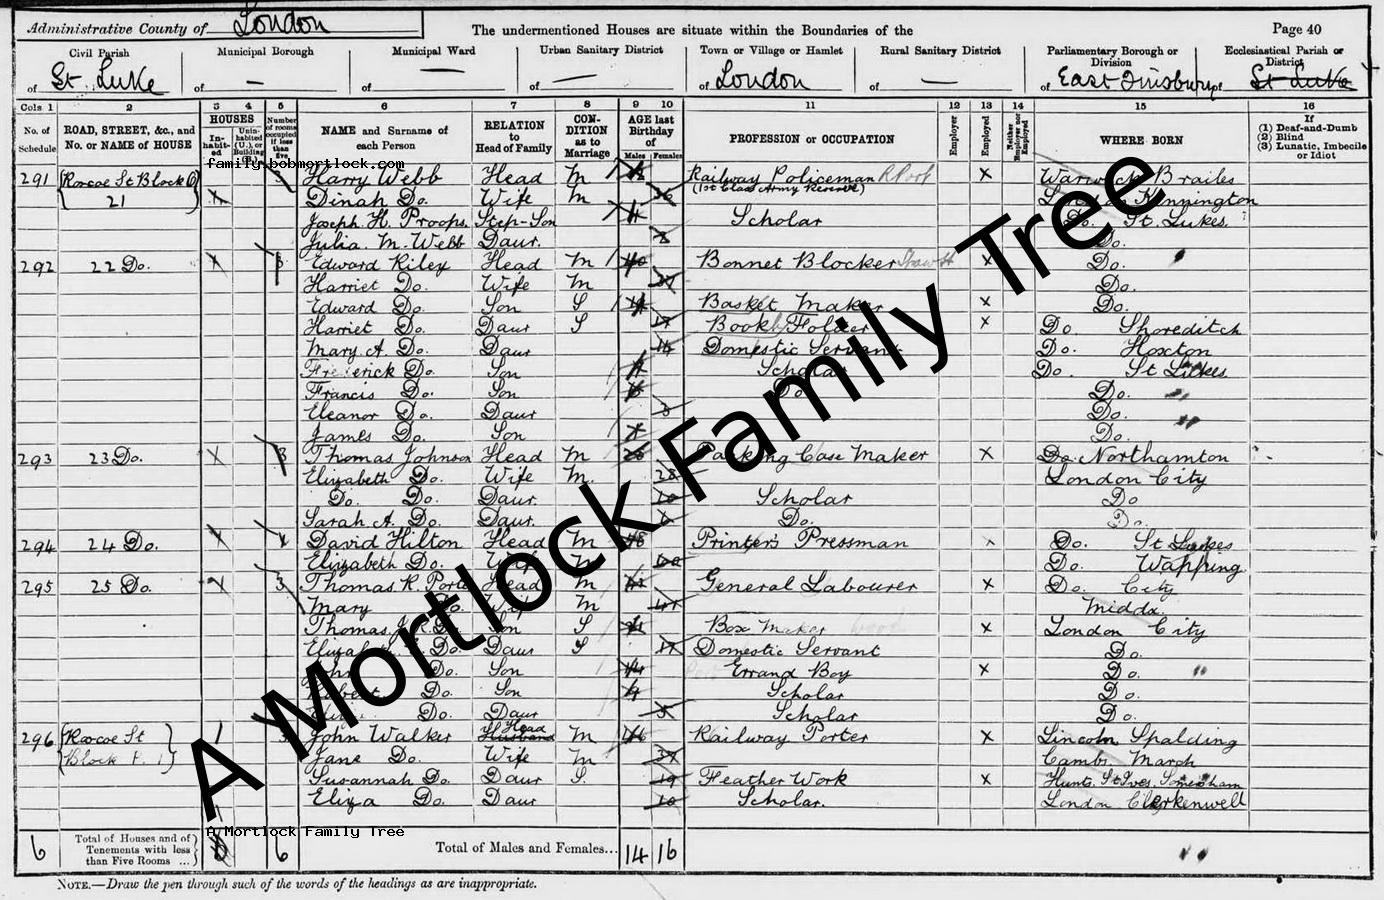 Administrative County of London The undermentioned Houses are situate within the Boundaries of the Page 40
Civil Parish Municipal Borough Municipal Ward Urban Sanitary District Town or Village or Hamlet Rural Sanitary District Parliamentary Borough or Division Ecclesiastical Parish or District
of St. Luke of — of — of — of London of — of East Finsbury of St Luke
Cols 1 2 3 4 5 6 7 8 9 10 11 12 13 14 15 16
No. of Schedule ROAD, STREET, &c., and No. or NAME of HOUSE HOUSES In-habit-ed Unin-habited (U.), or Building Number of rooms occupied if less than five NAME and Surname of each Person RELATION to Head of Family CON-DITION as to Marriage AGE last Birthday of Males Females PROFESSION or OCCUPATION Employer Employed Neither Employer nor Employed WHERE BORN If (1) Deaf-and-Dumb (2) Blind (3) Lunatic, Imbecile or Idiot
family.bobmortlock.com
291 Roscoe St Block Harry Webb Head M Railway Policeman X Warwick Brailes
21 Dinah Do. Wife M (1st Class Army Reserve) London Kennington
Joseph H. Proops. Step-Son Scholar Do. St. Lukes.
Julia. M. Webb Daur. Do.
292 22 Do. X Edward Riley Head M Bonnet Blocker X Do.
Harriet Do. Wife M Do.
Edward Do. Son S Basket Maker X Do.
Harriet Do. Daur S Book Folder X Do. Shoreditch
Mary A. Do. Daur Domestic Servant Do. Hoxton
Frederick Do. Son Scholar Do. St Lukes
Francis Do. Son Do. Do.
Eleanor Do. Daur Do.
James Do. Son Do.
293 23 Do. X 3 Thomas Johnson Head M Packing Case Maker X Do. Northamton
Elizabeth Do. Wife M. 28 London City
Do. Do. Daur. 10 Scholar Do
Sarah A. Do. Daur. Do. Do.
294 24 Do. X David Hilton Head M 48 Printers Pressman X Do. St Lukes
Elizabeth Do. Wife M 40 Do. Wapping
295 25 Do. X 3 Thomas R. Porter Head M General Labourer X Do. City
Mary Do. Wife M Middx.
Thomas Son S Box Maker X London City
Elizabeth Do. Daur S 17 Domestic Servant Do.
John Do. Son 14 Errand Boy X Do.
Robert Do. Son Scholar Do.
Do. Daur Scholar Do.
296 Roscoe St 1 John Walker Husband Head M 46 Railway Porter X Lincoln Spalding
Block Jane Do. Wife M Cambs March
Susannah Do. Daur S. 19 Feather Work X Hunts. St Ives. Somersham
Eliza Do. Daur 10 Scholar. London Clerkenwell
A Mortlock Family Tree
A Mortlock Family Tree
6 Total of Houses and of Tenements with less than Five Rooms ... 6 6 Total of Males and Females... 14 16
NOTE.—Draw the pen through such of the words of the headings as are inappropriate.